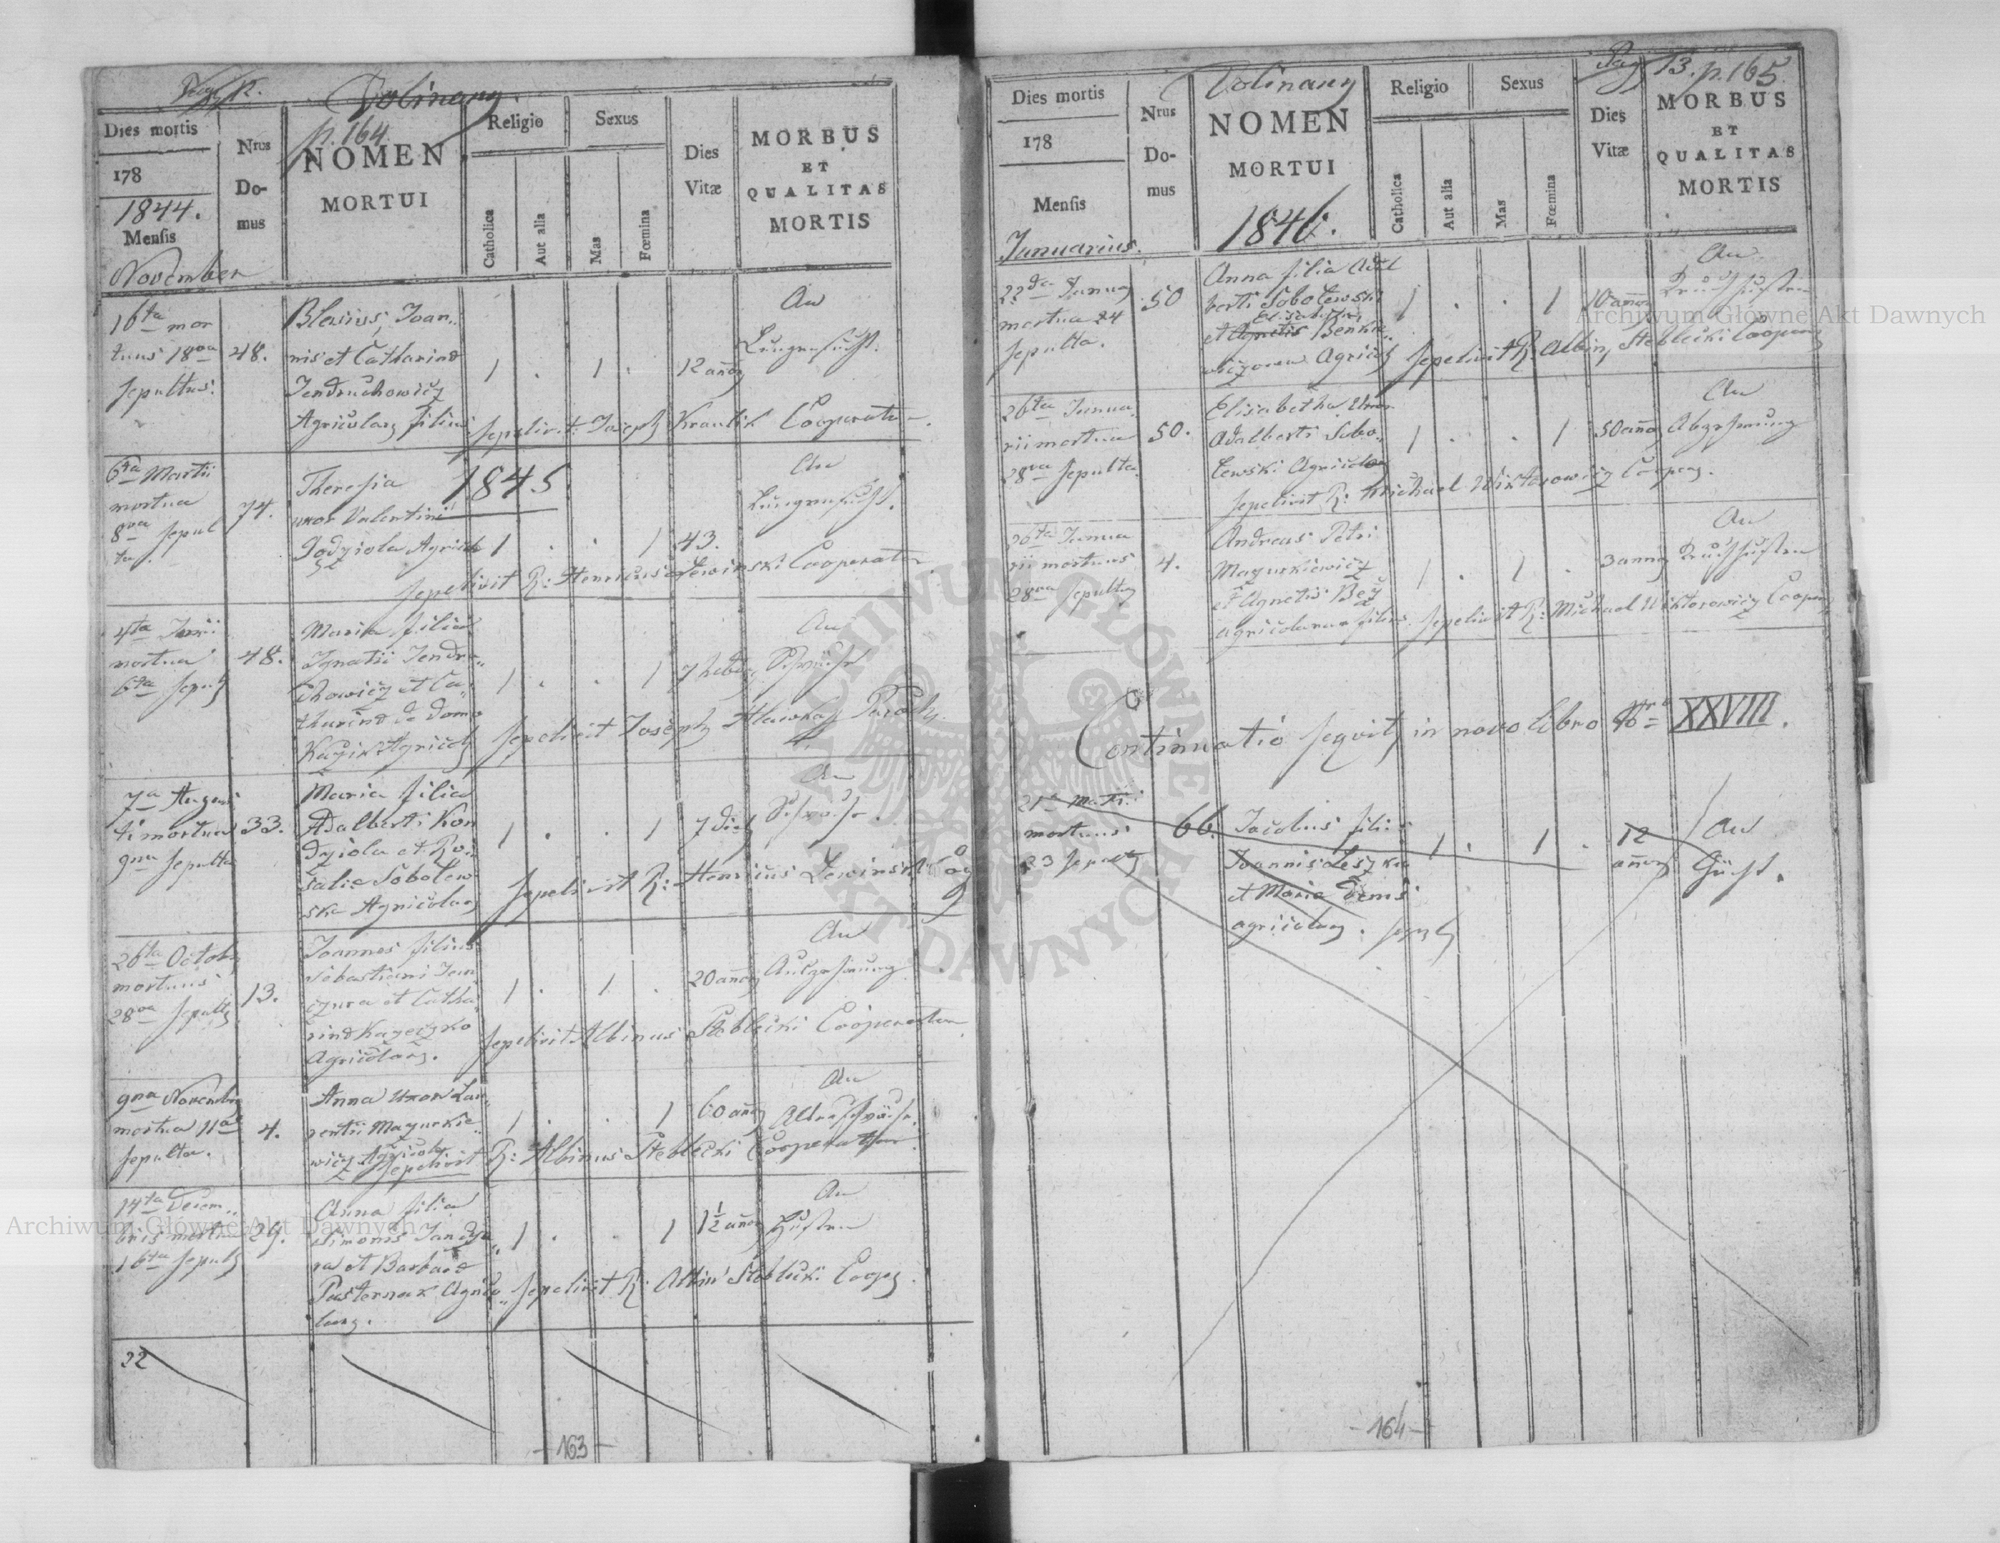 Pag 12.
Volinany.
p. 164.
Dies mortis
178
1844.
Mensis
November
Nrus
Do-
mus
NOMEN
MORTUI
Religio
Catholica
Aut alia
Sexus
Mas
Fœmina
Dies
Vitæ
MORBUS
ET
QUALITAS
MORTIS
16ta mor
tuus 18va
sepultus.
48.
Blasius, Joan„
nis et Catharinæ
Jendruchowicz
Agricolar filius
1 . 1 .
12 annor
An
Lungensucht.
sepelivit Joseph Kraulik Cooperator.
1845
6ta Martii
mortua
8va sepul
ta.
74.
Theresia
uxor Valentini
Agricolæ
1 . . 1
43.
An
Lungensucht.
sepelivit R: Henricus Lewinski Cooperator.
4ta Junii
mortua
6ta
48.
Maria filia
Ignatii Jendru„
chowicz et Ca„
tharinæ de domo
Kazik Agricol
1 . . 1
7
An
Schwäche
sepelivit Joseph Hlawka
7a Augus
ti mortua
9na sepulta
33.
Maria filia
Adalberti Kon
dziola et Ro
saliæ Sobolew
ska Agricolar
1 . . 1
7 dier
An
Schwäche.
sepelivit R: Henricus Lewinski
26ta Octobr
mortuus
28va
13.
Joannes filius
Sebastiani Jan
czura et Catha
rinæ
Agricolar.
1 . 1 .
20 annor
An
Auszehrung.
sepelivit Albinus Steblecki Cooperator
9na Novembr
mortua 11a
sepulta.
4.
Anna uxor Lau„
rentii Mazurkie„
wicz Agricolæ
1 . . 1
60 annor
An
Altersschwäche.
sepelivit R: Albinus Steblecki Cooperator
14ta Decem„
bris mortua
16ta
29.
Anna filia
Simonis Janczu„
ra et Barbaræ
Pasternak Agrico„
lar.
1 . . 1
1½ annor
An
Husten
sepelivit R: Albin Steblecki Coop.
22
- 163 -
Pag 13. p. 165.
Volinany
Dies mortis
178
Mensis
Januarius.
Nrus
Do-
mus
NOMEN
MORTUI
1846.
Religio
Catholica
Aut alia
Sexus
Mas
Fœmina
Dies
Vitæ
MORBUS
ET
QUALITAS
MORTIS
22da Januar
mortua 24
sepulta.
50
Anna filia Adal
berti Sobolewski
Elisabethæ
et Agnetis Benkie
wiczowna Agricol
1 . . 1
10 annor
An
Keuchhusten
sepelivit R: Albin Steblecki Cooper
26ta Janua
rii mortua
28va sepulta.
50.
Elisabetha uxor
Adalberti Sobo„
lewski Agricolæ
1 . . 1
50 annor
An
Abzehrung
sepelivit R: Michael Wiktorowicz Cooper.
26ta Janua
rii mortuus
28va
4.
Andreas Petri
Mazurkiewicz
et Agnetis
agricolarum filius
1 . 1 .
3 annor
An
Keuchhusten
sepelivit R: Michael Wiktorowicz Cooper
Continuatio seqvit in novo libro Nro XXVIII.
21a
mortuus
23
66.
Jacobus filius
Joannis Leszko
et Maria Demš
agricolar.
1 . 1 .
12
annor
An
Gicht.
- 164 -
Archiwum Główne Akt Dawnych
Archiwum Główne Akt Dawnych
ARCHIWUM GŁÓWNE AKT DAWNYCH